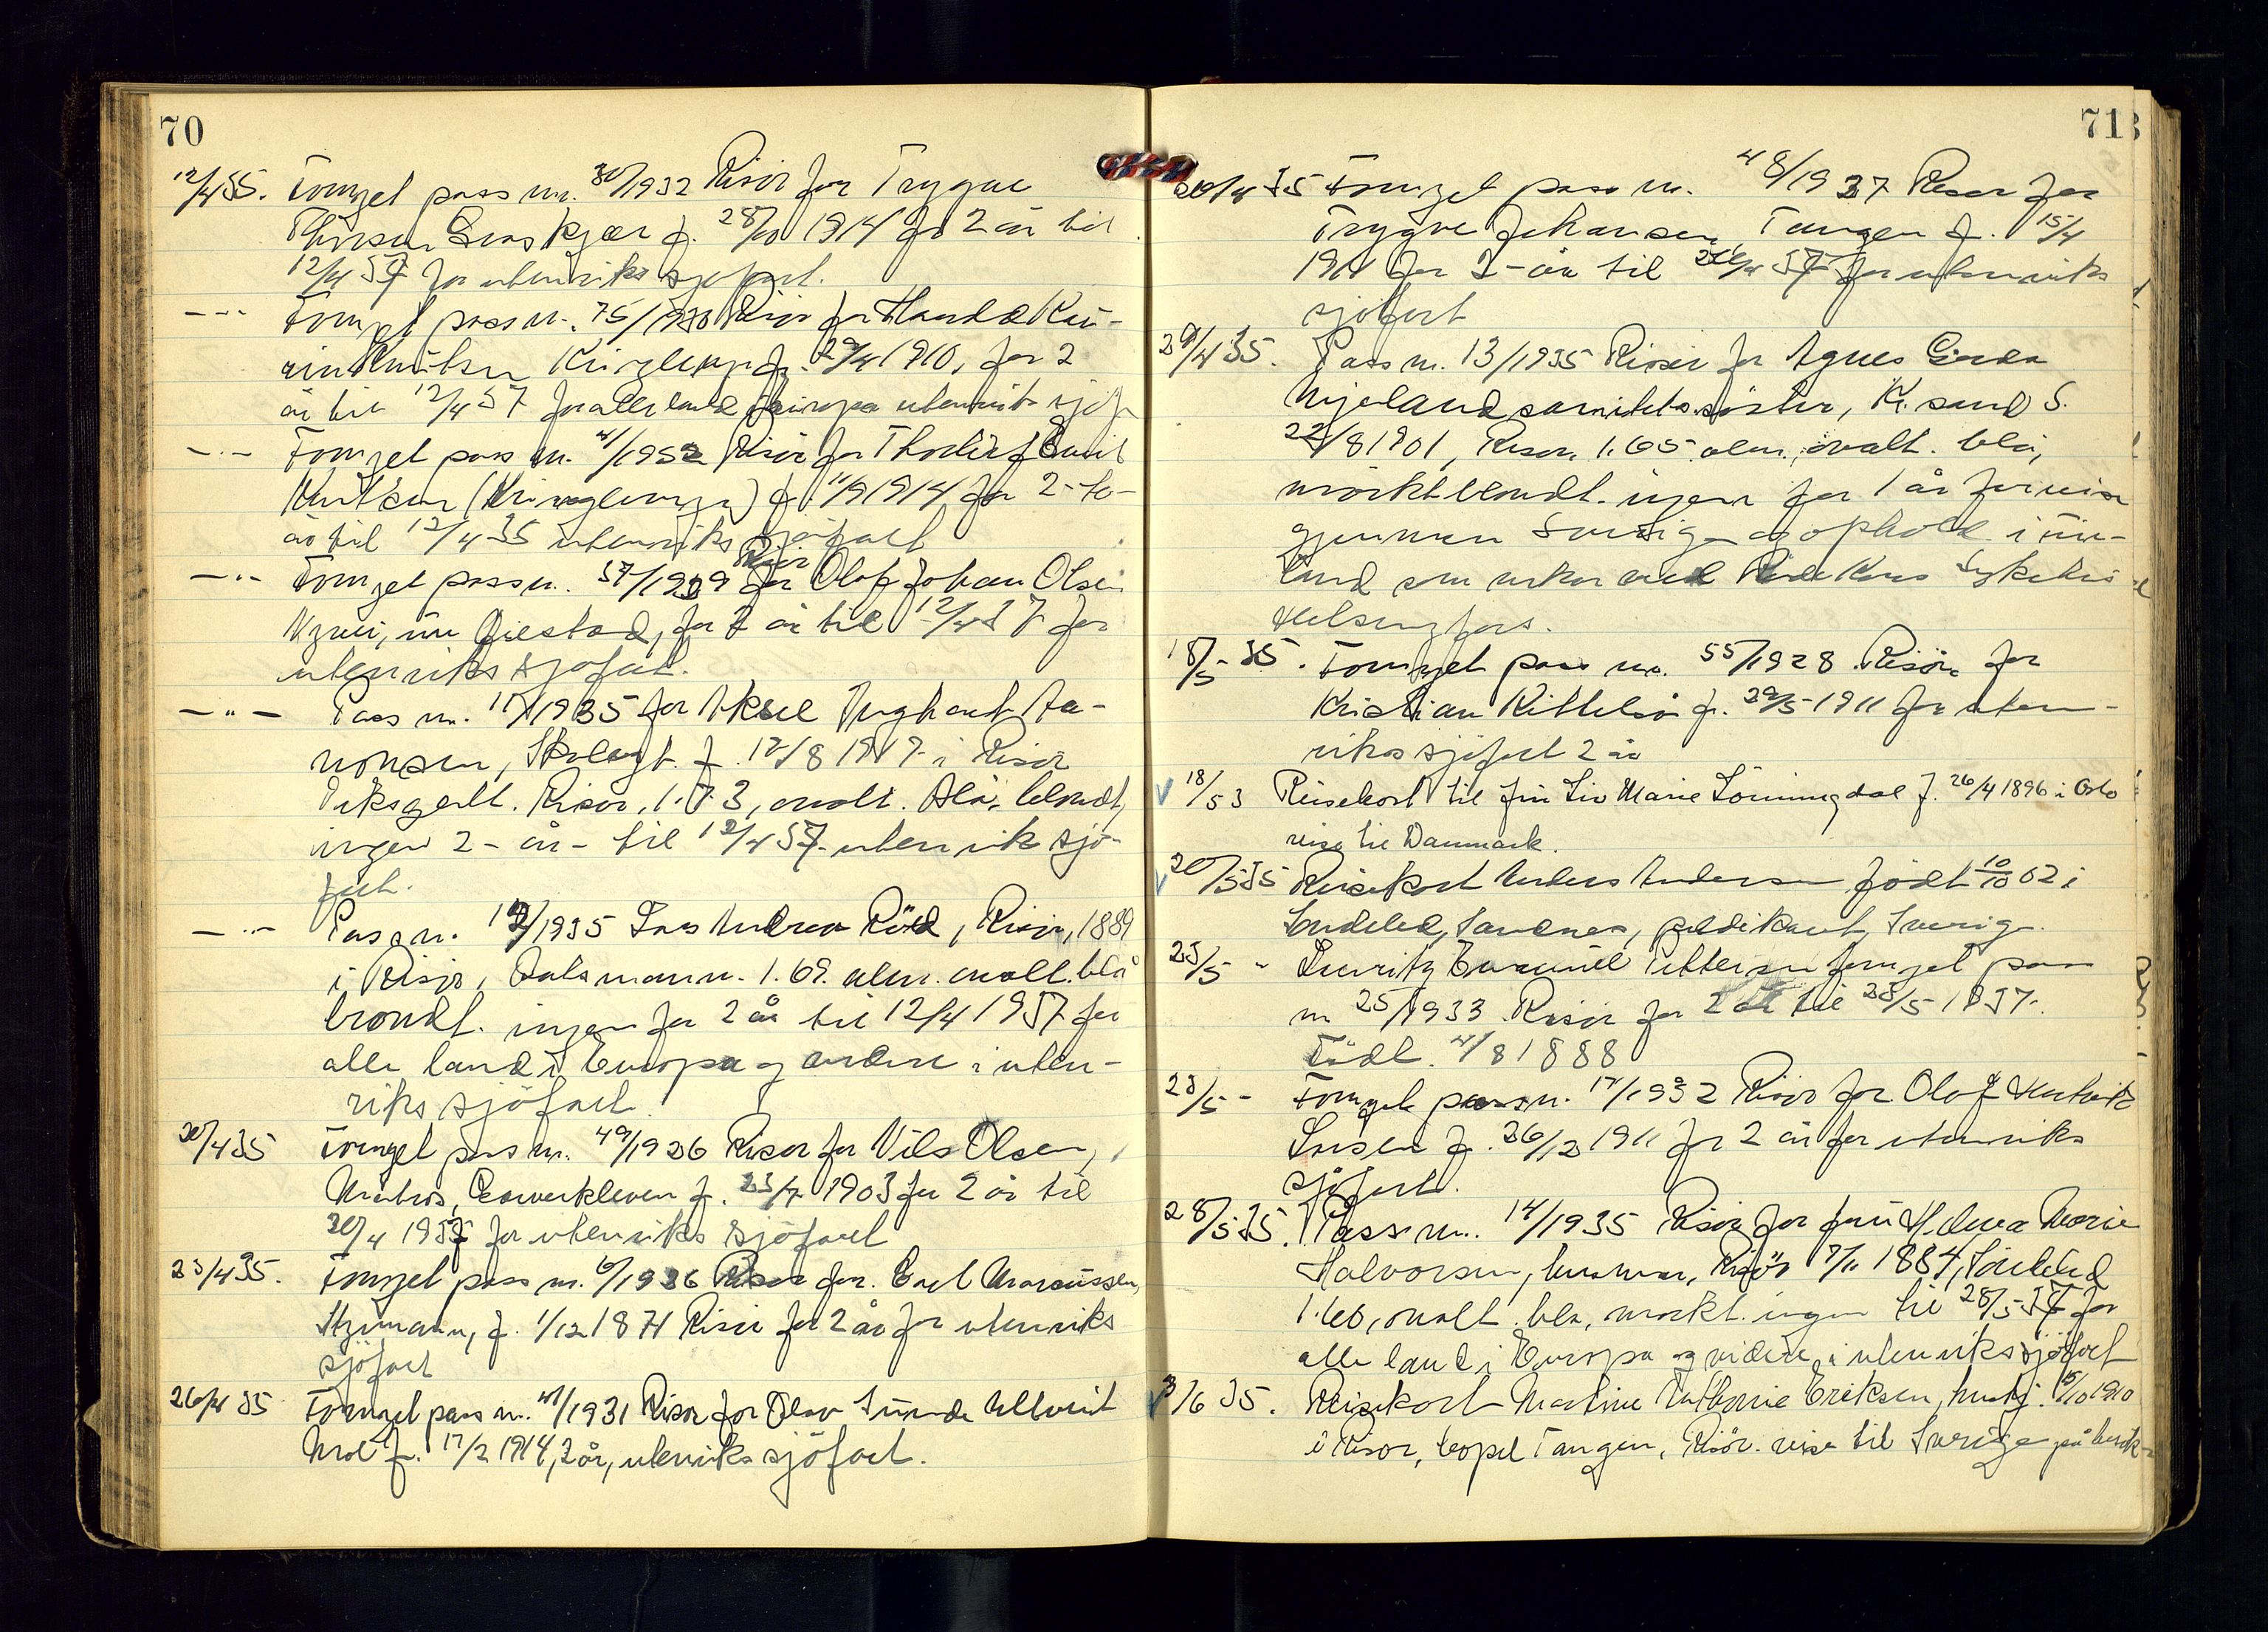 70
12/4 35. Fornyet pass nr. 30/1932 Risør for Trygve
f. 28/10 1914 for 2 år til
12/4 37 for utenriks sjøfart.
Fornyet pass nr. 75/1930 Risør for Harald Kaa-
rin Knutsen Kringlemyr f. 29/4 1910, for 2
år til 12/4 37 for alle land i Europa utenriks sjøf
Fornyet pass nr. 41/1932 Risør for Thorleif Emil
Knutsen (Kringlemyr) f. 11/9 1914 for 2 - to -
år til 12/4 35 utenriks sjøfart
Risør
Fornyet pass nr. 57/1929 for Olaf Johan Olsen
nu Gjestad, for 2 år til 12/4 37 for
utenriks sjøfart.
— " — Pass nr. 11/1935 for Aksel Aa-
nonsen, f. 12/8 1917 i Risør
Risør, 1.73, ovalt. blå, blondt,
ingen 2 - år - til 12/4 37 utenriks sjø-
fart.
Pass nr. 12/1935 Lars Andreas Röed, Risør, 1889
i Risør, Båtsmann. 1.69. alm. ovalt. blå
blondt. ingen for 2 år til 12/4 1937 for
alle land i Europa og videre i uten-
riks sjöfart.
20/4 35 Fornyet pass nr. 49/1926 Risør for Nils Olsen,
Matros, f. 23/7 1903 for 2 år til
20/4 1937 for utenriks sjöfart
23/4 35. Fornyet pass nr. 6/1926 Risør for. Carl Marcussen,
Styrmann, f. 1/12 1871 Risør for 2 år for utenriks
sjöfart
26/4 35 Fornyet pass nr. 41/1931 Risør for Olav
f. 17/2 1914, 2 år, utenriks sjöfart.
71
26/4 35 Fornyet pass nr. 48/1927 Risør for
Trygve Johansen, Tangen f. 15/4
1911 for 2 - år til 26/4 37 for utenriks
sjöfart
29/4 35. Pass nr. 13/1935 Risør for Agnes Gerda
Mjeland sanitetssöster, Kr.sand S.
22/8 1901, Risør. 1.65. alm., ovalt. blå,
mörkt blondt. ingen for 1 år for reise
gjennem Sverige og ophold i Fin-
land som ved Röde Kors Sykehus
Helsingfors.
18/5 35. Fornyet pass nr. 55/1928. Risör for
Kristian Kittelsen f. 29/5 1911 for uten-
riks sjöfart 2 år
18/5 3 Reisekort til fru Liv Marie Lönningdal f. 26/4 1896 i Oslo
reise til Danmark.
20/5 35 Reisekort Anders Andersen födt 10/10 02 i
Söndeled, Sandnes, predikant, Sverige.
23/5 - Lauritz Emanuel Pettersen fornyet pass
nr 25/1933 Risör for 2 år til 23/5 1937.
Födt. 4/8 1888
23/5 - Fornyet pass nr. 17/1932 Risör for Olaf
Larsen f. 26/12 1911 for 2 år for utenriks
sjöfart.
28/5 35. Pass nr. 14/1935 Risör for fru Helena Marie
Halvorsen, husmor, Risör 7/11 1884, Söndeled
1.60, ovalt. blå, mörkt. ingen til 28/5 37 for
alle land i Europa og videre, i utenriks sjöfart
3/6 35. Reisekort Martine Cathrine Eriksen, hushj. 5/10 1910
i Risör, bopel Tangen, Risör. reise til Sverige på besök